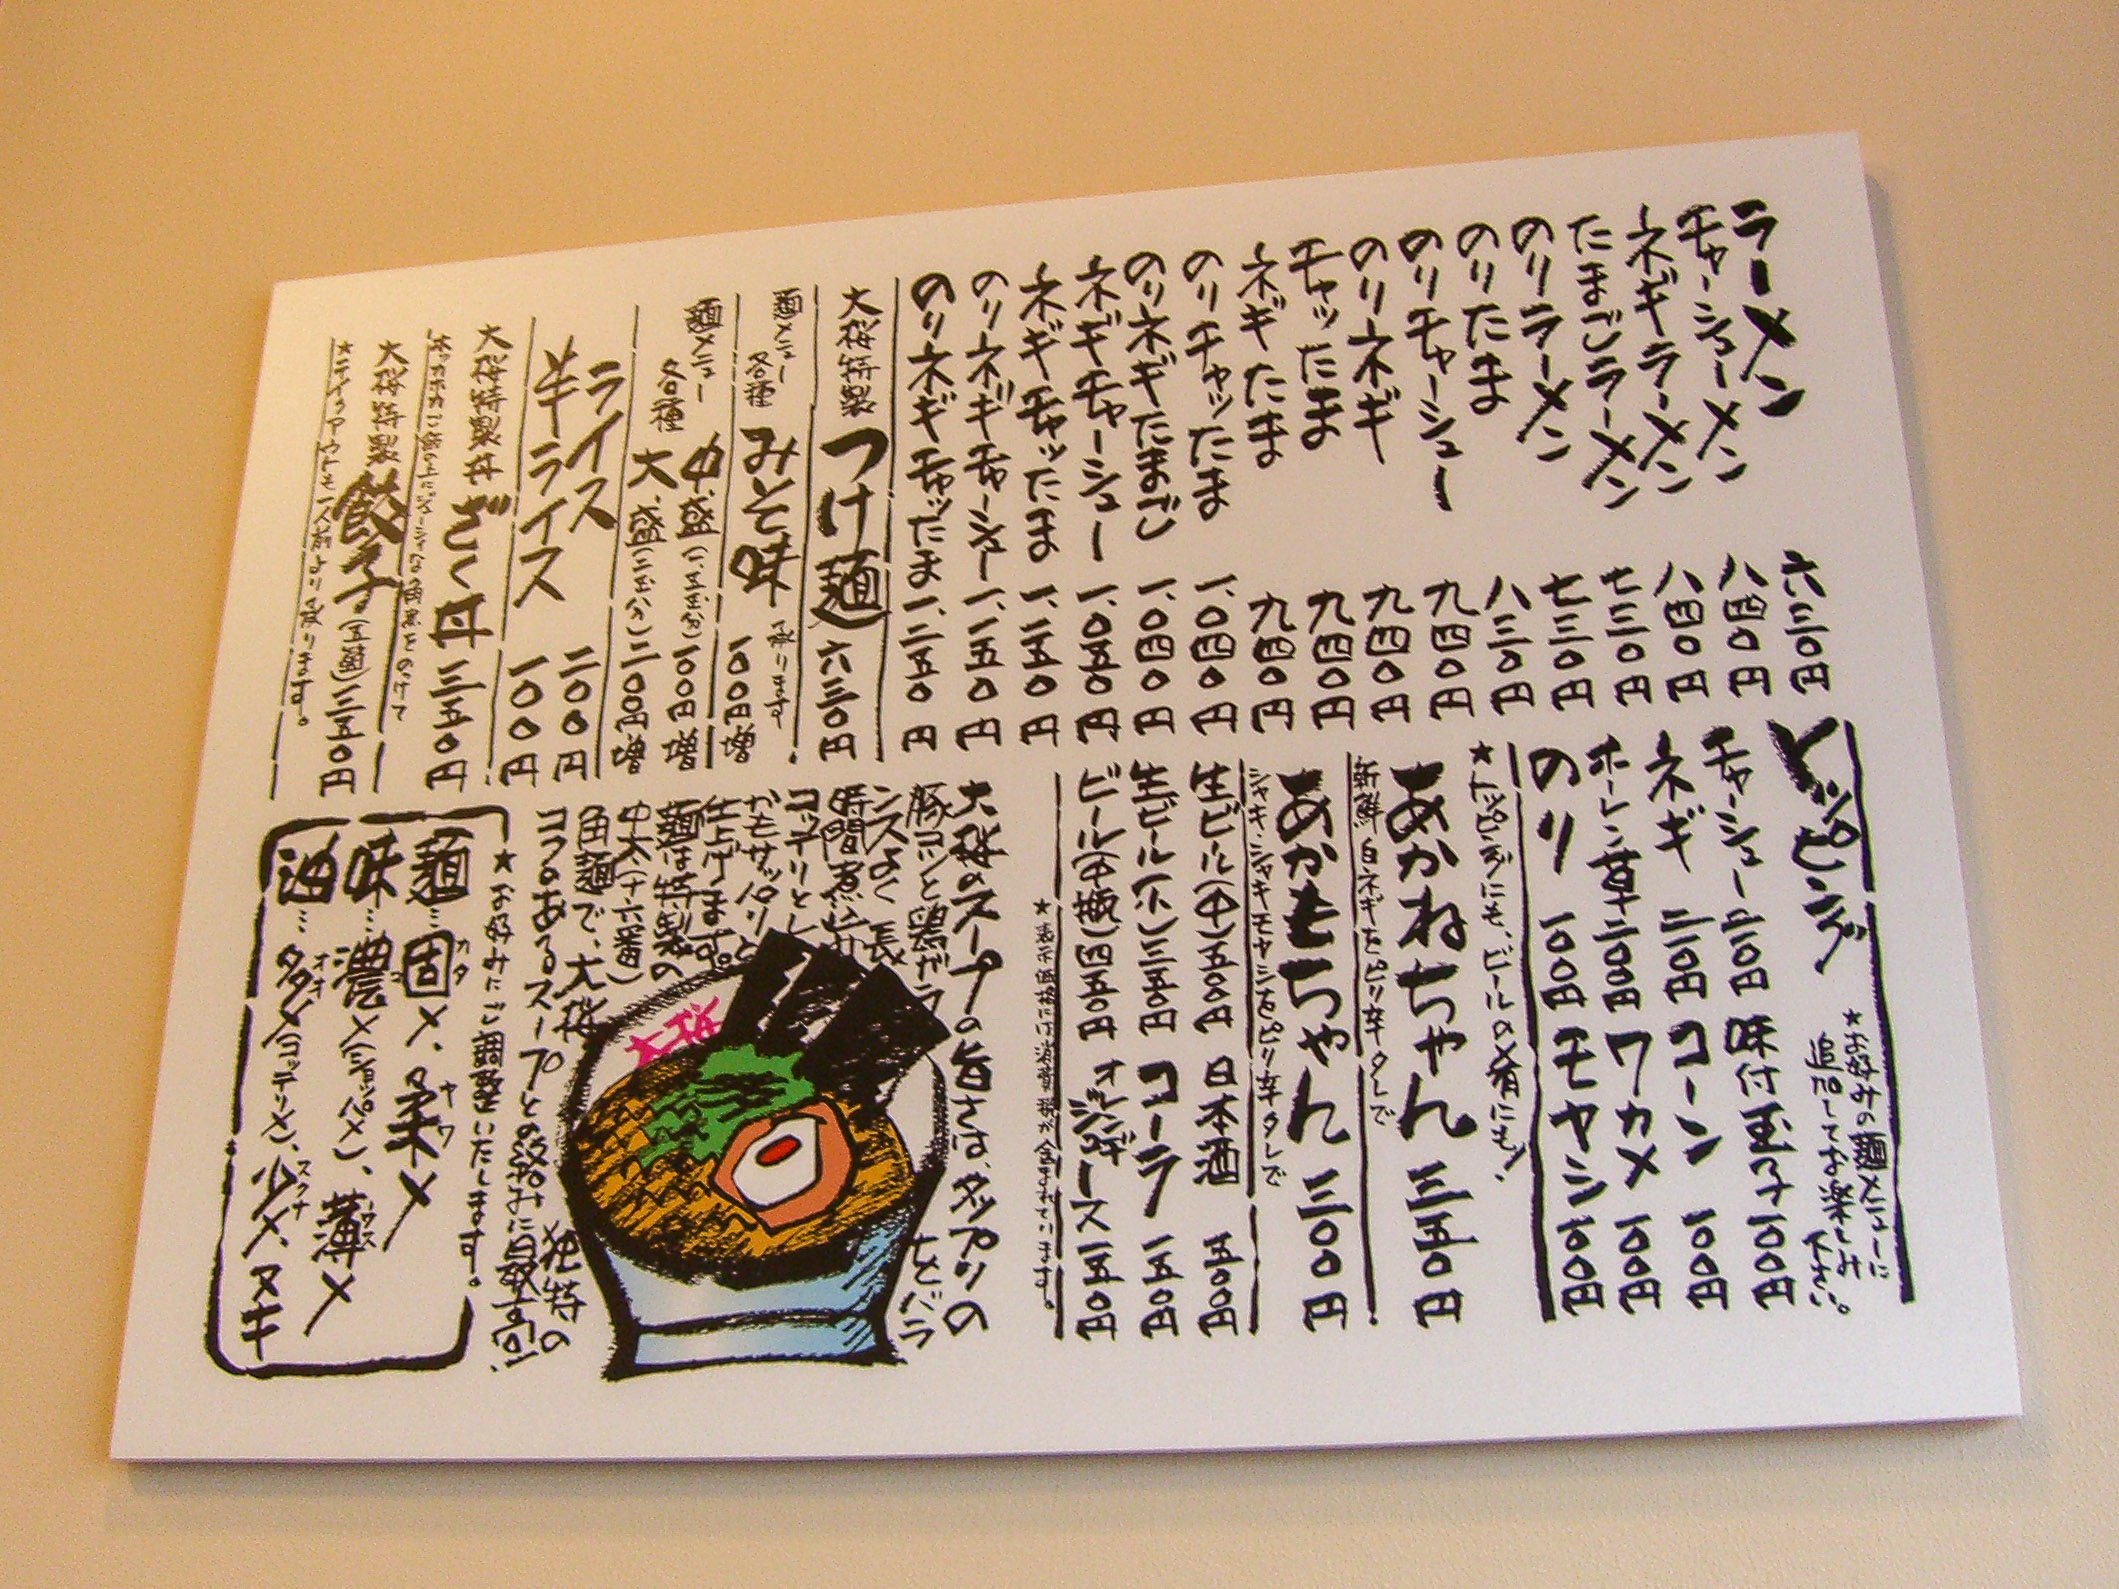 ラーメン 六三〇円
チャーシューメン 八四〇円
ネギラーメン 八四〇円
たまごラーメン 七三〇円
のりラーメン 七三〇円
のりたま 八三〇円
のりチャーシュー 九四〇円
のりネギ 九四〇円
チャッたま 九四〇円
ネギたま 九四〇円
のりチャッたま 一、〇四〇円
のりネギたまご 一、〇四〇円
ネギチャーシュー 一、〇五〇円
ネギチャッたま 一、一五〇円
のりネギチャーシュー 一、一五〇円
のりネギチャッたま 一、二五〇円
大桜特製 つけ麺 六三〇円
麺メニュー各種 みそ味 承ります 一〇〇円増
麺メニュー各種 中盛(一、五玉分)一〇〇円増
大盛(二玉分)二〇〇円増
ライス 二〇〇円
半ライス 一〇〇円
大桜特製丼 ざく丼 三五〇円
ホッカホカご飯の上にジューシィな角煮をのっけて
大桜特製 餃子(五個)三五〇円
★テイクアウトも一人前より承ります。
トッピング
★お好みの麺メニューに
追加してお楽しみ下さい。
チャーシュー 二一〇円 味付玉子 一〇〇円
ネギ 二一〇円 コーン 一〇〇円
ホーレン草 二〇〇円 ワカメ 一〇〇円
のり 一〇〇円 モヤシ 一〇〇円
★トッピングにも、ビールの肴にも!
あかねちゃん 三五〇円
新鮮白ネギをピリ辛タレで
あかもちゃん 三〇〇円
シャキシャキモヤシをピリ辛タレで
生ビール(中)五〇〇円 日本酒 五〇〇円
生ビール(小)三五〇円 コーラ 一五〇円
ビール(中瓶)四五〇円 オレンジジュース 一五〇円
★表示価格には消費税が含まれています。
大桜のスープの旨さは、タップリの
豚コツと鶏ガラをバラ
ンスよく長
時間煮込み
コッテリとし
かもサッパリと
仕上げます。
麺は特製の
中太(十六番)
角麺で、大桜独特の
コクのあるスープとの絡みに最高!
★お好みにご調整いたします。
麺…固カタメ、柔ヤワメ
味…濃コメ(ショッパメ)、薄ウスメ
油…多オオメ(コッテリメ)、少スクナメ、ヌキ
大桜